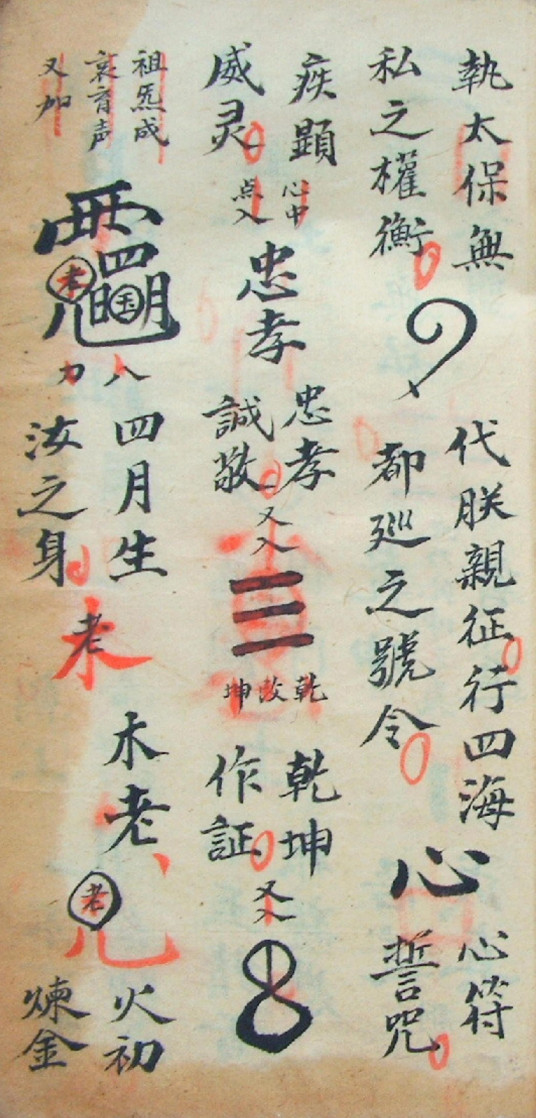 執太保無
私之權衡
代朕親征行四海
都巡之號令
心
心符
誓咒
疾顯
威灵
心中
点入
忠孝
忠孝
誠敬
又入
三
乾
改
坤
乾坤
作証
又入
祖炁成
哀育声
又加
四
明
老
玉
八
力
四月生
汝之身
老
木老
老
火初
煉金